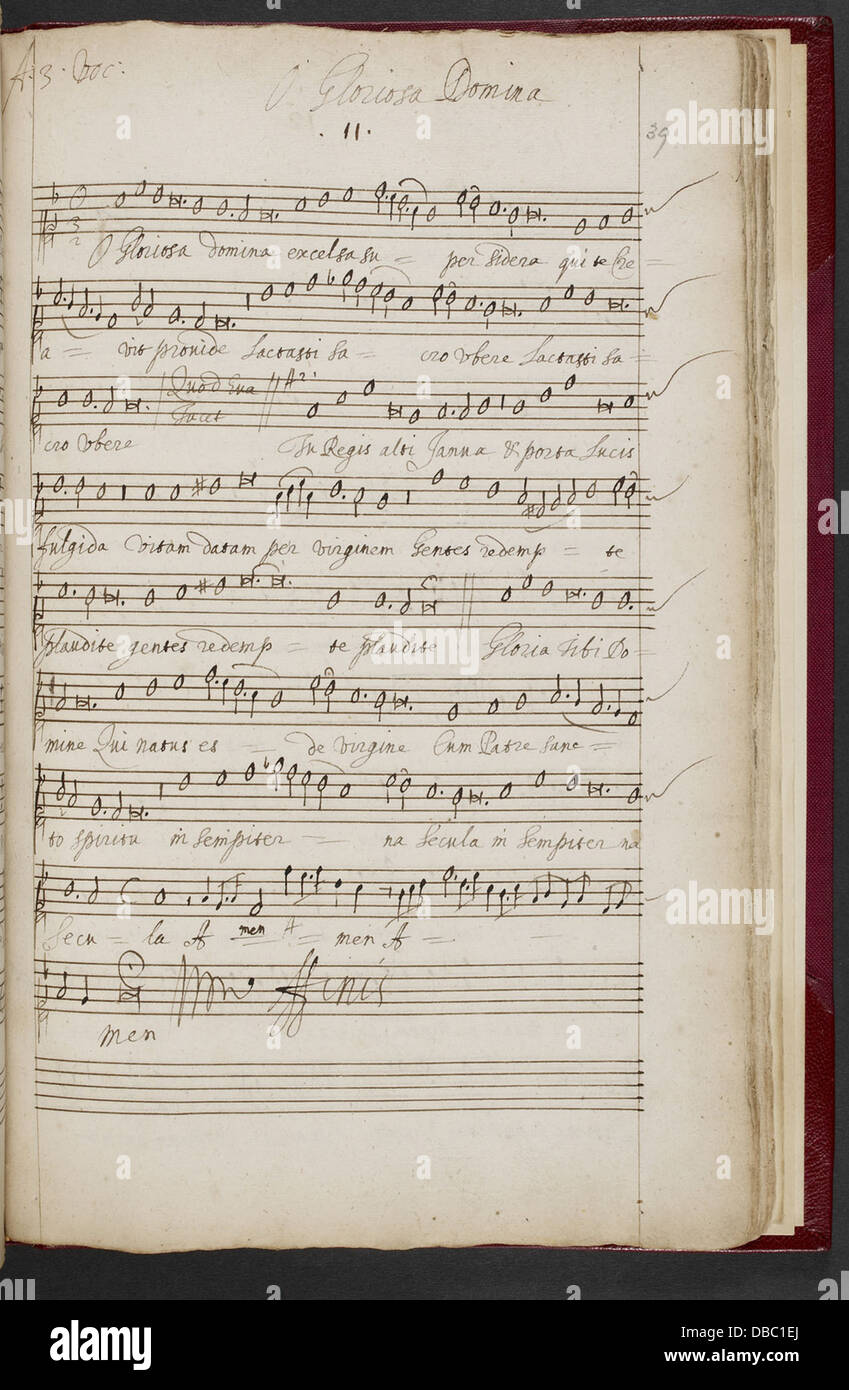 A. 3. Voc:
O Gloriosa Domina
. 11 .
39
3
2
O Gloriosa domina excelsa su = per sidera qui te Cre =
a = vit provide Lactasti sa = cro vbere Lactasti sa =
Quod Eva
tacet
A 2:
cro vbere Tu Regis alti Janua & porta Lucis
fulgida vitam datam per virginem Gentes redemp = te
plaudite gentes redemp = te plaudite Gloria tibi Do =
mine Qui natus es = de virgine Cum Patre sanc =
to spiritu in sempiter = na secula in sempiter na
secu = la A men A = men A =
men
ffinis
alamy
Image ID: DBC1EJ
www.alamy.com